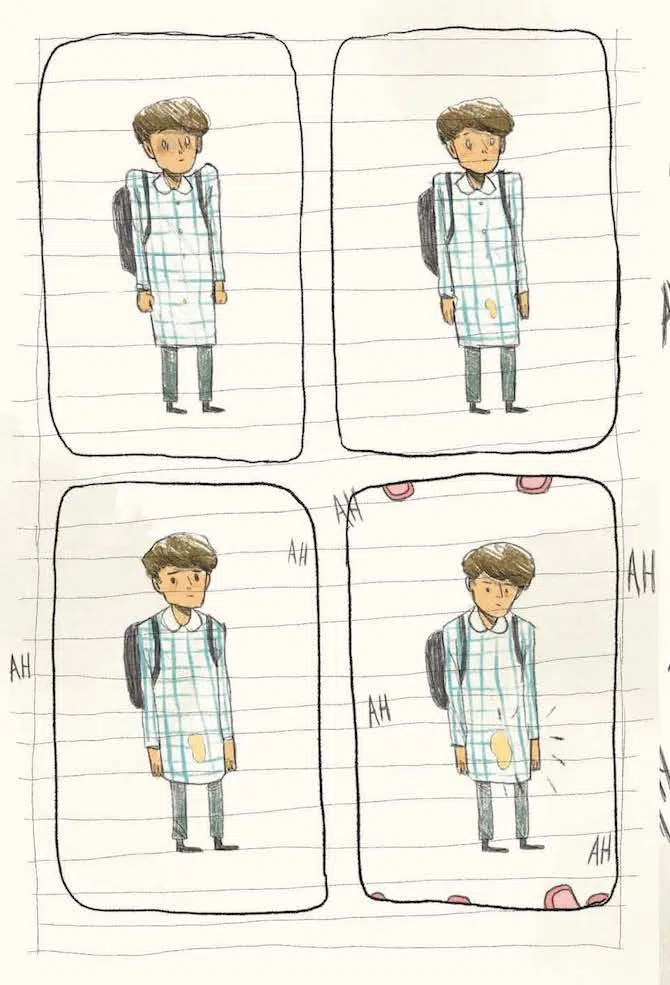 AH
AH
AH
AH
AH
AH